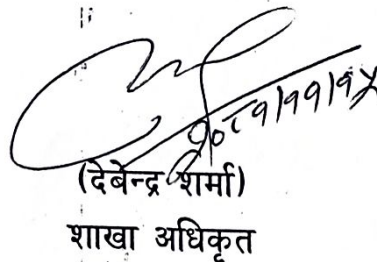 २०८१।११।१५
(देबेन्द्र शर्मा)
शाखा अधिकृत